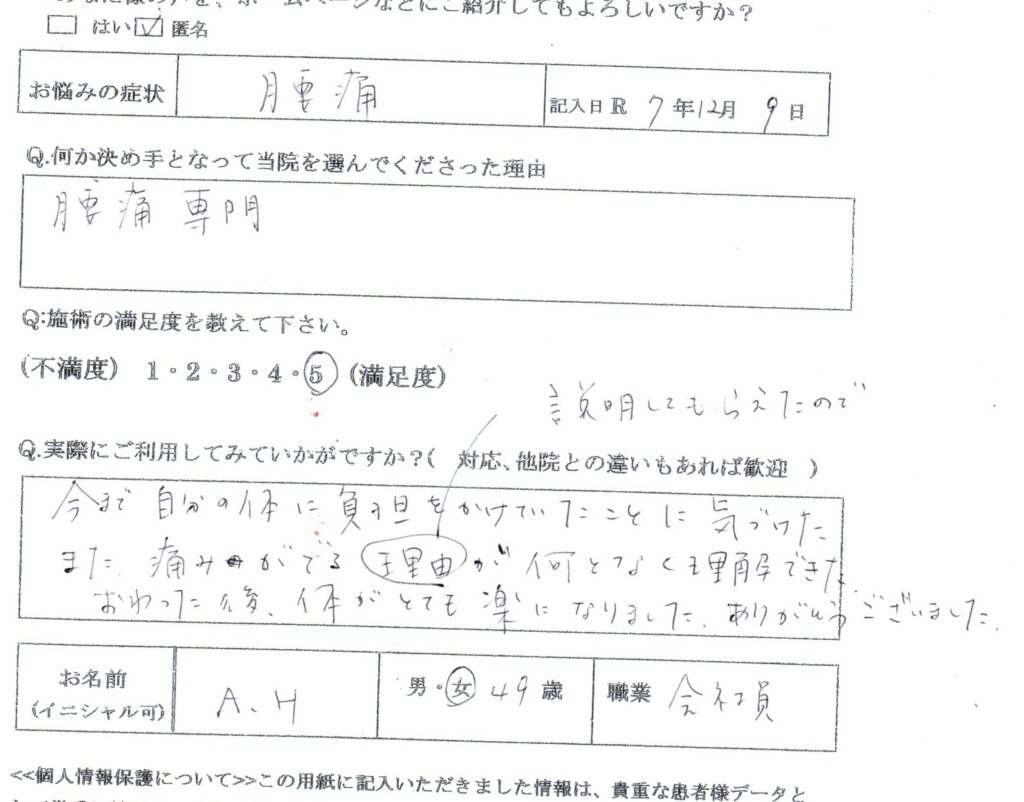 ホームページなどにご紹介してもよろしいですか?
□ はい ☑ 匿名
お悩みの症状 腰痛 記入日 R 7年12月9日
Q.何か決め手となって当院を選んでくださった理由
腰痛 専門
Q:施術の満足度を教えて下さい。
(不満度) 1・2・3・4・5 (満足度)
説明してもらえたので
Q.実際にご利用してみていかがですか?( 対応、他院との違いもあれば歓迎 )
今まで自分の体に負担をかけていたことに気づけた
また、痛みがでる理由が何となく理解できた
おわった後、体がとても楽になりました。ありがとうございました。
お名前 (イニシャル可) A.H 男・女 49歳 職業 会社員
<<個人情報保護について>>この用紙に記入いただきました情報は、貴重な患者様データと